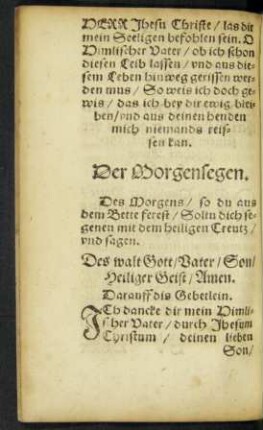 HERR Jhesu Christe / las dir
mein Seeligen befohlen sein. O
Himlischer Vater / ob ich schon
diesen Leib lassen / vnd aus die-
sem Leben hinweg gerissen wer-
den mus / So weis ich doch ge-
wis / das ich bey dir ewig blei-
ben / vnd aus deinen henden
mich niemands reis-
sen kan.
Der Morgensegen.
Des Morgens / so du aus
dem Bette ferest / Soltu dich se-
genen mit dem heiligen Creutz /
vnd sagen.
Des walt Gott / Vater / Son /
Heiliger Geist / Amen.
Darauff dis Gebetlein.
ICh dancke dir mein Himli-
scher Vater / durch Jhesum
Christum / deinen lieben
Son /